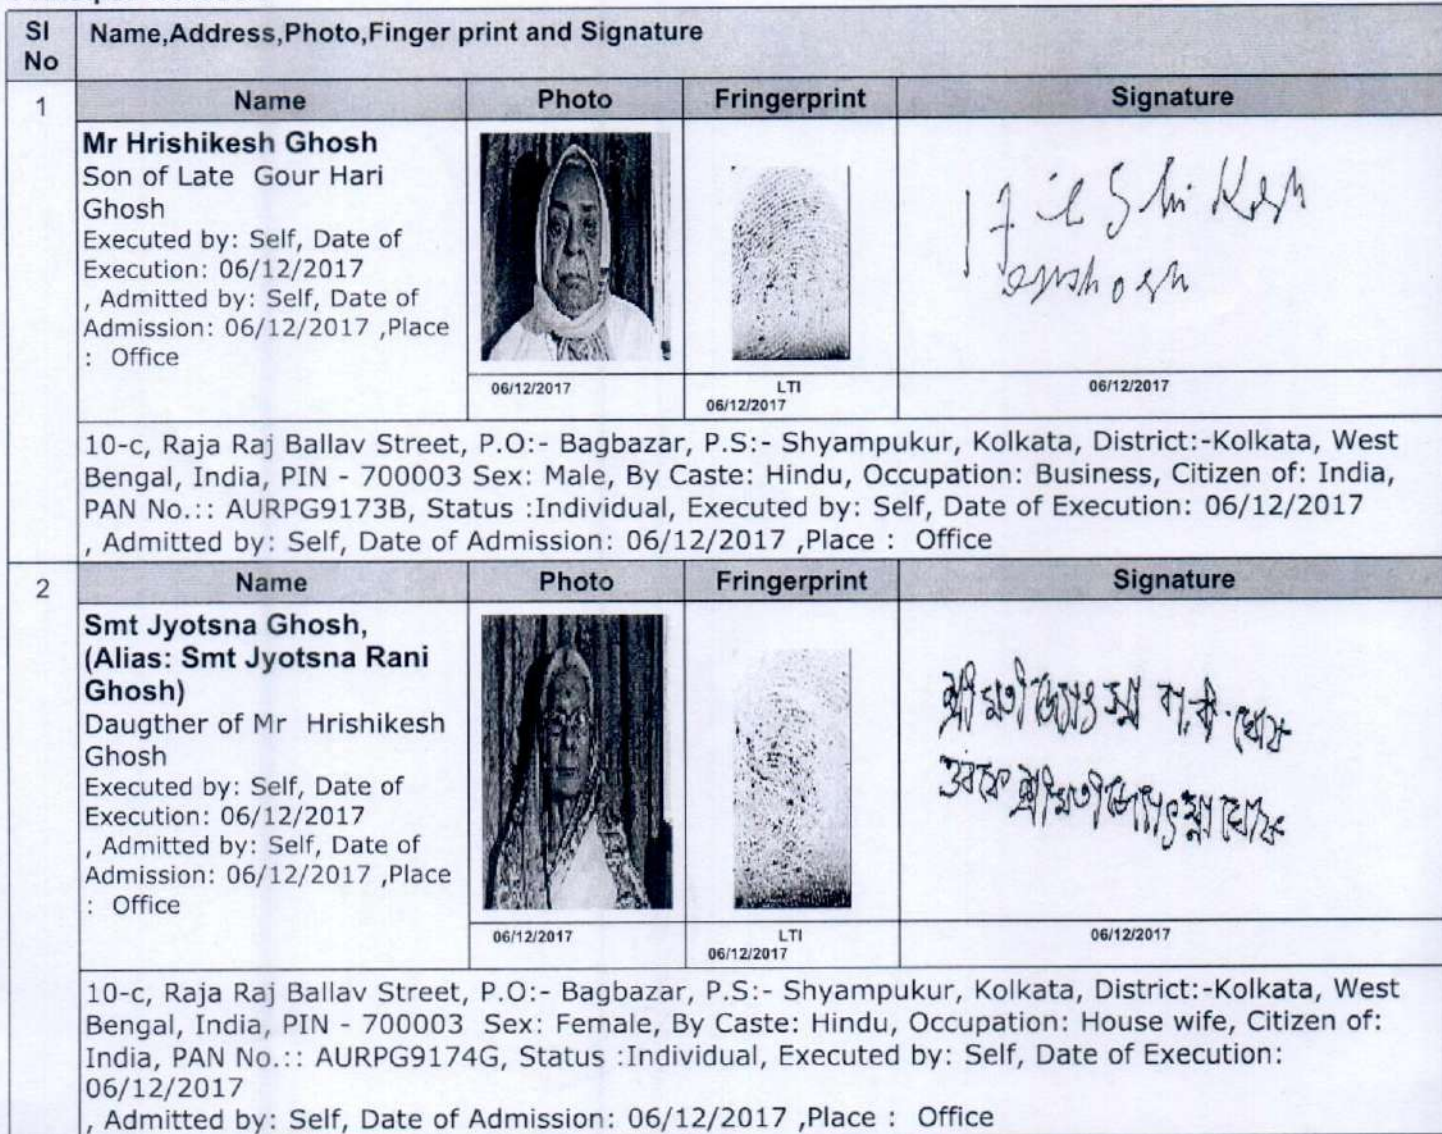 Sl No
Name,Address,Photo,Finger print and Signature
1
Name Photo Fringerprint Signature
Mr Hrishikesh Ghosh
Son of Late Gour Hari
Ghosh
Executed by: Self, Date of
Execution: 06/12/2017
, Admitted by: Self, Date of
Admission: 06/12/2017 ,Place
: Office
06/12/2017
LTI
06/12/2017
06/12/2017
10-c, Raja Raj Ballav Street, P.O:- Bagbazar, P.S:- Shyampukur, Kolkata, District:-Kolkata, West
Bengal, India, PIN - 700003 Sex: Male, By Caste: Hindu, Occupation: Business, Citizen of: India,
PAN No.:: AURPG9173B, Status :Individual, Executed by: Self, Date of Execution: 06/12/2017
, Admitted by: Self, Date of Admission: 06/12/2017 ,Place : Office
2
Name Photo Fringerprint Signature
Smt Jyotsna Ghosh,
(Alias: Smt Jyotsna Rani
Ghosh)
Daugther of Mr Hrishikesh
Ghosh
Executed by: Self, Date of
Execution: 06/12/2017
, Admitted by: Self, Date of
Admission: 06/12/2017 ,Place
: Office
06/12/2017
LTI
06/12/2017
শ্রীমতী
শ্রীমতী জ্যোৎস্না ঘোষ
06/12/2017
10-c, Raja Raj Ballav Street, P.O:- Bagbazar, P.S:- Shyampukur, Kolkata, District:-Kolkata, West
Bengal, India, PIN - 700003 Sex: Female, By Caste: Hindu, Occupation: House wife, Citizen of:
India, PAN No.:: AURPG9174G, Status :Individual, Executed by: Self, Date of Execution:
06/12/2017
, Admitted by: Self, Date of Admission: 06/12/2017 ,Place : Office